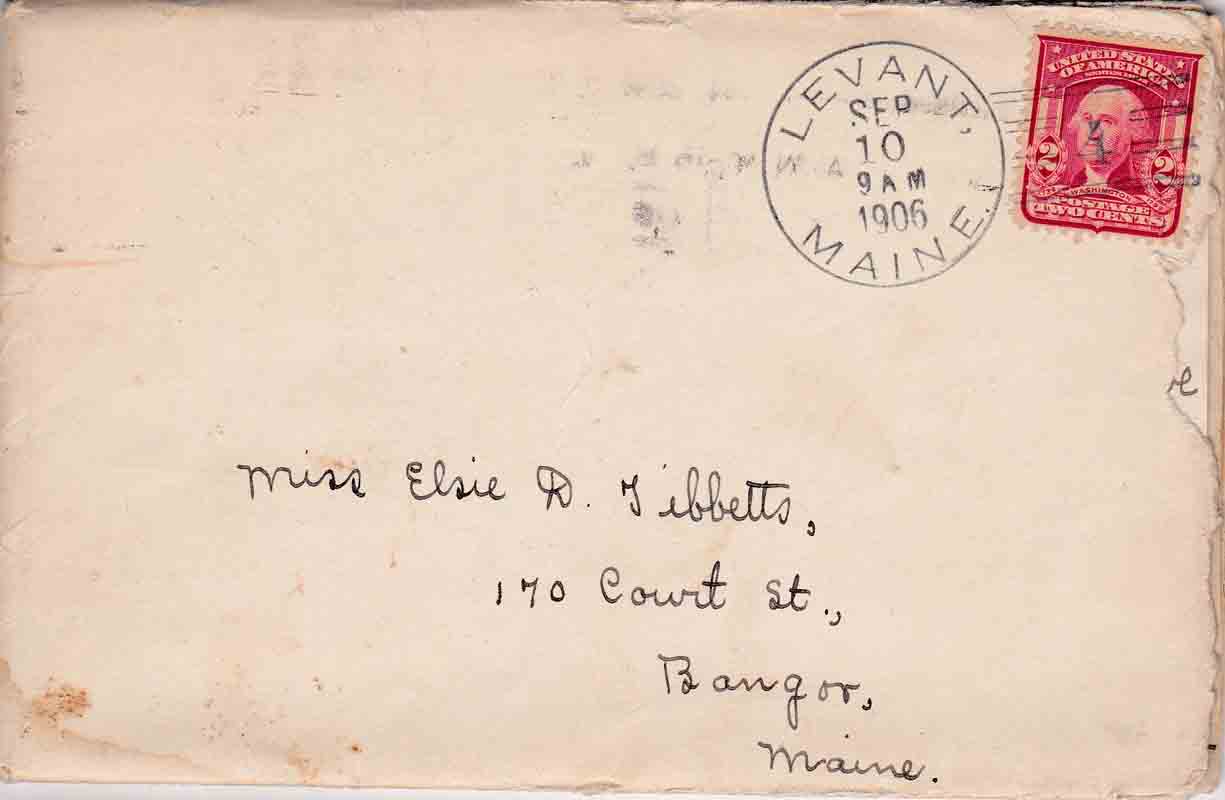 LEVANT,
SEP
10
9 AM
1906
MAINE.
UNITED STATES
OF AMERICA
2 2
WASHINGTON
POSTAGE
TWO CENTS
Miss Elsie D. Tibbetts,
170 Court St.,
Bangor,
Maine.